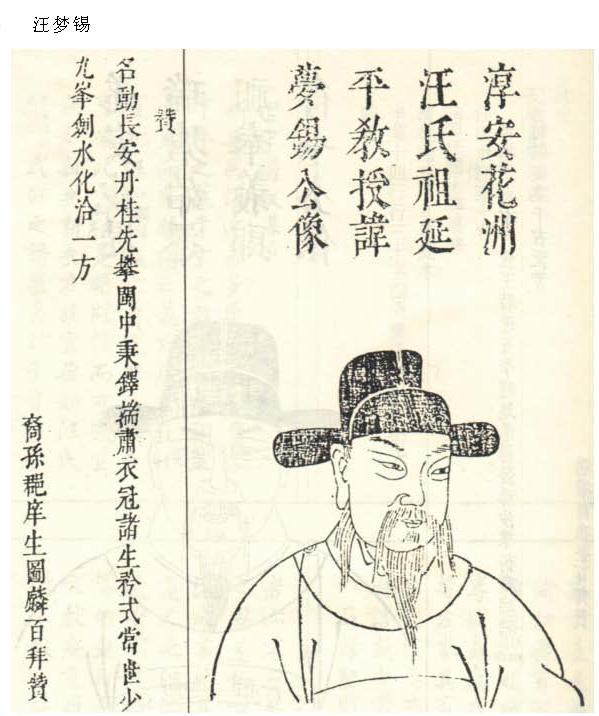 汪梦锡
淳安花洲
汪氏祖延
平教授諱
夢錫公像
贊
名動長安丹桂先攀閩中秉鐸端肅衣冠諸生矜式當世少
九峯劍水化洽一方
裔孫庠生圖麟百拜贊